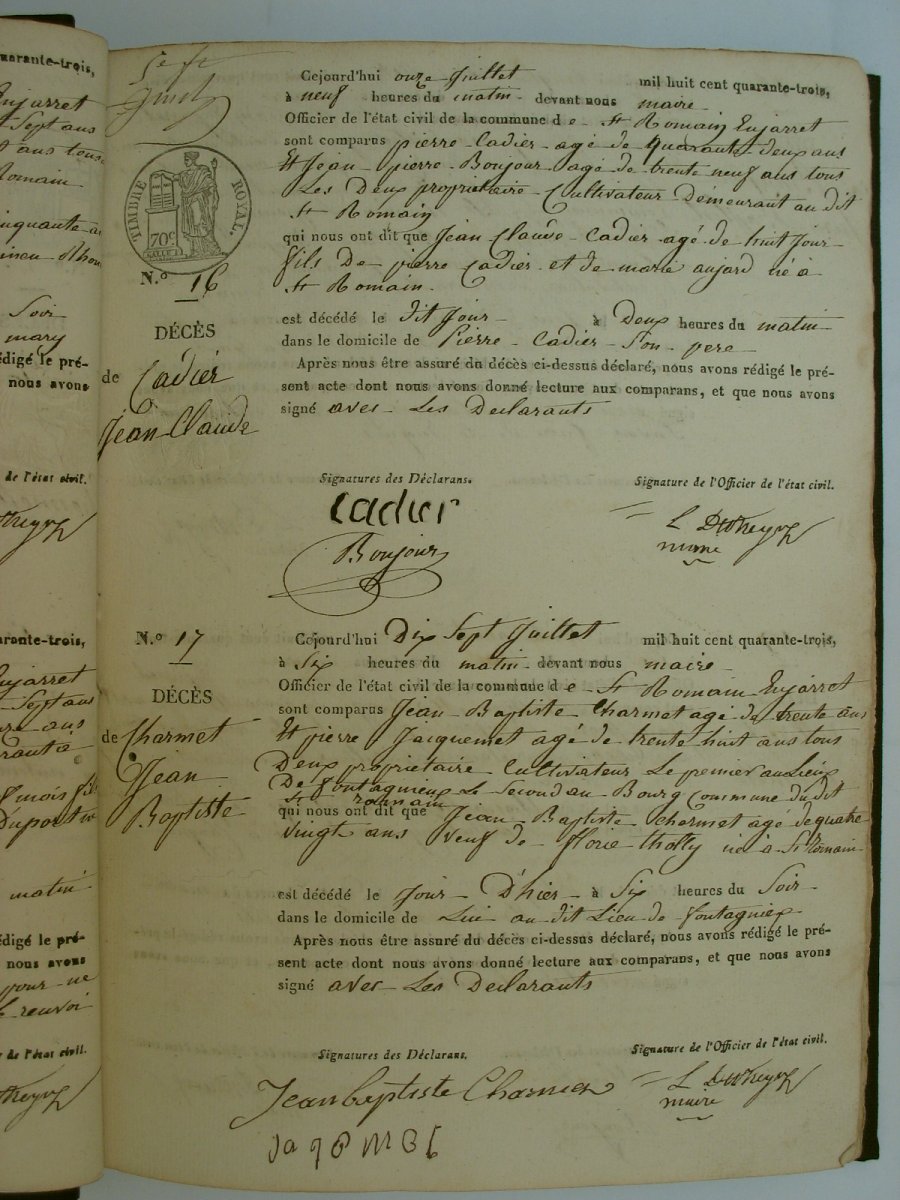 uarante-trois,
Enjarret
Sept ans
t ans tous
Romain
inquante a
Soir
mary
édigé le pré-
nous avons
de l'état civil.
arante-trois,
Enjarret
Sept ans
ans
matin
édigé le pré-
nous avons
pour ne
renvoi
de l'état civil.
5e ft
TIMBRE ROYAL.
70c
N.o 16
DÉCÈS
de Cadier
Jean Claude
Cejourd'hui onze Juillet mil huit cent quarante-trois,
à neuf heures du matin devant nous maire
Officier de l'état civil de la commune de St Romain Enjarret
sont comparus pierre Cadier agé de quarante deux ans
Et Jean pierre Bonjour agé de trente neuf ans tous
Les Deux propriétaire Cultivateur Demeurant au dit
St Romain
qui nous ont dit que Jean Claude Cadier agé de huit Jour
fils De pierre Cadier et de marie aujard né à
St Romain.
est décédé le dit Jour à Deux heures du matin
dans le domicile de Pierre Cadier Son pere
Après nous être assuré du décès ci-dessus déclaré, nous avons rédigé le pré-
sent acte dont nous avons donné lecture aux comparans, et que nous avons
signé avec Les Declarants
Signatures des Déclarans. Signature de l'Officier de l'état civil.
Cadier
Bonjour
maire
N.o 17
DÉCÈS
de Charmet
Jean
Baptiste
Cejourd'hui Dix Sept Juillet mil huit cent quarante-trois,
à Six heures du matin devant nous maire
Officier de l'état civil de la commune de St Romain Enjarret
sont comparus Jean Baptiste Charmet agé de trente ans
Et pierre Jacquemet agé de trente huit ans tous
Deux propriétaire Cultivateur Le premier au Lieu
De fontagnieu Le Second au Bourg Commune du dit
St romain
qui nous ont dit que Jean Baptiste Charmet agé de quatre
vingt ans veuf de florie tholly né à St Romain
est décédé le Jour D'hier à Six heures du Soir
dans le domicile de Lui au dit Lieu de fontagnieu
Après nous être assuré du décès ci-dessus déclaré, nous avons rédigé le pré-
sent acte dont nous avons donné lecture aux comparans, et que nous avons
signé avec Les Declarants
Signatures des Déclarans. Signature de l'Officier de l'état civil.
Jean baptiste
maire